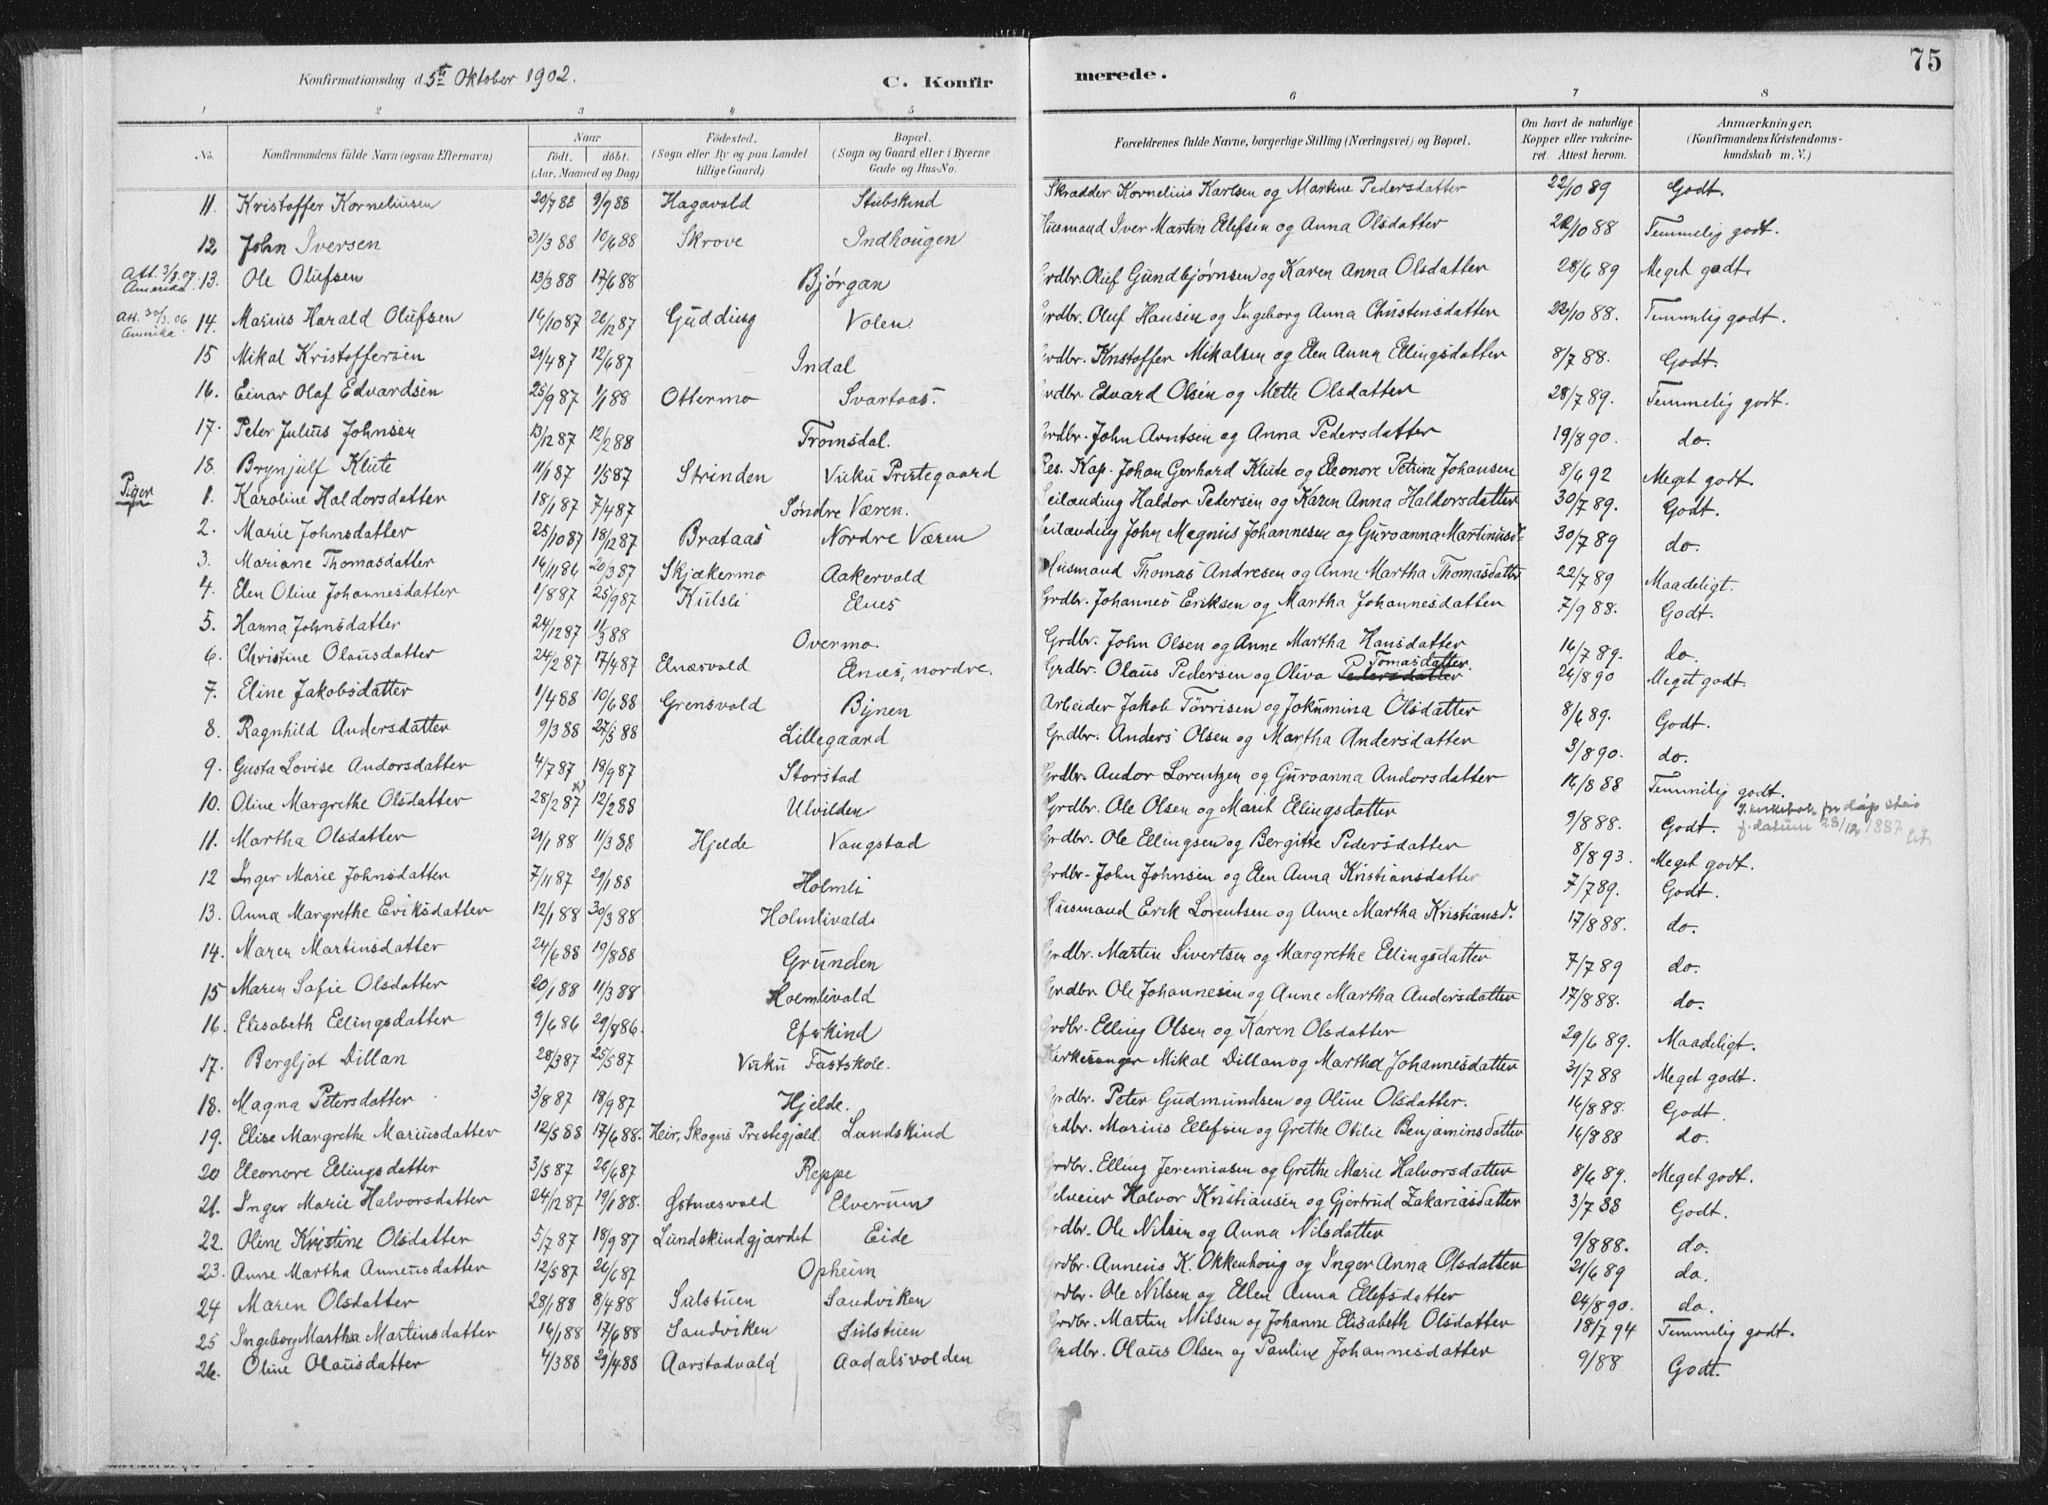 Konfirmationsdag d. 5te Oktober 1902.
C. Konfir
merede.
75
1 2 3 4 5 6 7 8
No. Konfirmandens fulde Navn (ogsaa Efternavn) Naar födt. döbt. (Aar, Maaned og Dag) Födested. (Sogn eller By og paa Landet tillige Gaard) Bopæl. (Sogn og Gaard eller i Byerne Gade og Hus-No. Forældrenes fulde Navne, borgerlige Stilling (Næringsvei) og Bopæl. Om havt de naturlige Kopper eller vakcineret. Attest herom. Anmærkninger. (Konfirmandens Kristendomskundskab m. V.)
11. Kristoffer Korneliusen 20/7 88 9/9 88 Hagavald Stubskind Skrædder Kornelius Karlsen og Martine Pedersdatter 22/10 89 Godt.
12 John Iversen 31/3 88 10/6 88 Skrove Indhougen Husmand Iver Martin Ellefsen og Anna Olsdatter 22/10 88 Temmelig godt.
Att. 3/8.07. Amerika. 13. Ole Olufsen 13/3 88 17/6 88 Bjørgan Grdbr. Oluf Gundbjørnsen og Karen Anna Olsdatter 28/6 89 Meget godt.
Att. 30/3.06 Amerika. 14. Marius Harald Olufsen 16/10 87 26/12 87 Gudding Volen. Grdbr. Oluf Hansen og Ingeborg Anna Christensdatter 22/10 88. Temmlig godt.
15 Mikal Kristoffersen 21/4 87 12/6 87 Indal Grdbr. Kristoffer Mikalsen og Elen Anna Ellingsdatter 8/7 88. Godt.
16. Einar Olaf Edvardsen 25/9 87 1/1 88 Ottermo Svartaas. Grdbr. Edvard Olsen og Mette Olsdatter 28/7 89. Temmelig godt.
17. Peter Julius Johnsen 13/12 87 12/2 88 Tromsdal. Grdbr. John Arntsen og Anna Pedersdatter 19/8 90. do.
18. Brynjulf Klüte 11/1 87 1/5 87 Strinden Vuku Prestegaard Res. Kap. Johan Gerhard Klüte og Eleonore Petrine Johansen 8/6 92 Meget godt.
Piger
1. Karoline Haldorsdatter 18/1 87 7/4 87 Søndre Væren. Leilænding Haldor Pedersen og Karen Anna Haldorsdatter 30/7 89. Godt.
2. Marie Johnsdatter 25/10 87 18/12 87 Brataas Nordre Væren Leilænding John Magnus Johannesen og Guroanna Martinusd. 30/7 89 do.
3. Mariane Thomasdatter 16/11 86 20/3 87 Skjækermo Aakervald Husmand Thomas Andresen og Anne Martha Thomasdatter 22/7 89 Maadeligt.
4. Elen Oline Johannesdatter 1/8 87 25/9 87 Kulsli Elnes Grdbr. Johannes Eriksen og Martha Johannesdatter 7/9 88. Godt.
5. Hanna Johnsdatter 24/12 87 11/3 88 Overmo. Grdbr. John Olsen og Anne Martha Hansdatter 16/7 89. do.
6. Christine Olausdatter 24/2 87 17/4 87 Elnesvald Elnes, nordre. Grdbr. Olaus Pedersen og Oliva Pedersdatter Tomasdatter. 26/8 90 Meget godt.
7. Eline Jakobsdatter 1/4 88 10/6 88 Grensvald Bynen Arbeider Jakob Törrisen og Jokumina Olsdatter 8/6 89. Godt.
8. Ragnhild Andersdatter 9/3 88 27/5 88 Lillegaard Grdbr. Anders Olsen og Martha Andersdatter 3/8 90. do.
9. Gusta Lovise Andorsdatter 4/7 87 18/9 87 Storstad Grdbr. Andor Lorentzen og Guroanna Andorsdatter 16/8 88 Temmelig godt.
10. Oline Margrethe Olsdatter 28/2 87 x) 12/2 88 Ulvilden Grdbr. Ole Olsen og Marit Ellingsdatter 9/8 88. Godt. f. datum 28/12 1887
11. Martha Olsdatter 21/1 88 11/3 88 Hjelde Vangstad Grdbr. Ole Ellingsen og Bergitte Pedersdatter 8/8 93. Meget godt.
12 Inger Marie Johnsdatter 7/11 87 29/1 88 Holmli Grdbr. John Johnsen og Elen Anna Kristiansdatter 7/7 89. Godt.
13. Anna Margrethe Eriksdatter 12/1 88 30/3 88 Holmlivald Husmand Erik Lorentsen og Anne Martha Kristiansd. 17/8 88. do.
14. Maren Martinsdatter 24/6 88 19/8 88 Grunden Grdbr. Martin Sivertsen og Margrethe Ellingsdatter 7/7 89 do.
15 Maren Sofie Olsdatter 20/1 88 11/3 88 Holmlivald Grdbr Ole Johannesen og Anne Martha Andersdatter 17/8 88. do.
16. Elisabeth Ellingsdatter 9/6 86 29/8 86. Efskind Grdbr. Elling Olsen og Karen Olsdatter 29/6 89. Maadeligt.
17. Bergljot Dillan 28/3 87 25/5 87 Vuku Fastskole. Kirkesanger Mikal Dillan og Martha Johannesdatter 31/7 88 Meget godt.
18. Magna Petersdatter 3/8 87 18/9 87 Hjelde. Grdbr. Peter Gudmundsen og Oline Olsdatter. 16/8 88. Godt.
19. Elise Margrethe Mariusdatter 12/5 88 17/6 88. Heir, Skogns Prestegjæld. Lundskind Grdbr. Marius Ellefsen og Grethe Otilie Benjaminsdatter 16/8 88 do.
20 Eleonore Ellingsdatter 3/5 87 26/6 87 Reppe Grdbr. Elling Jeremiasen og Grethe Marie Halvorsdatter 8/6 89. Meget godt.
21. Inger Marie Halvorsdatter 24/12 87 19/1 88. Østnesvald Elverum Selveier Halvor Kristiansen og Gjertrud Zakariasdatter 3/7 88 Godt.
22. Oline Kristine Olsdatter 5/7 87 18/9 87 Lundskindgjærdet Eide Grdbr. Ole Nilsen og Anna Nilsdatter 9/8 88. do.
23. Anne Martha Anneusdatter 12/5 87 26/6 87 Opheim Grdbr. Anneus K. Okkenhoug og Inger Anna Olsdatter 21/6 89 do.
24 Maren Olsdatter 28/1 88 8/4 88 Sulstuen Sandviken Grdbr. Ole Nilsen og Ellen Anna Ellefsdatter 24/8 90. do.
25 Ingeborg Martha Martinsdatter 16/1 88 17/6 88 Sandviken Sulstuen Grdbr. Martin Nilsen og Johanne Elisabeth Olsdatter 18/7 94 Temmlig godt.
26. Oline Olausdatter 4/3 88 29/4 88 Aarstadvald Aadalsvolden Grdbr. Olaus Olsen og Pauline Johannesdatter 9/88 Godt.